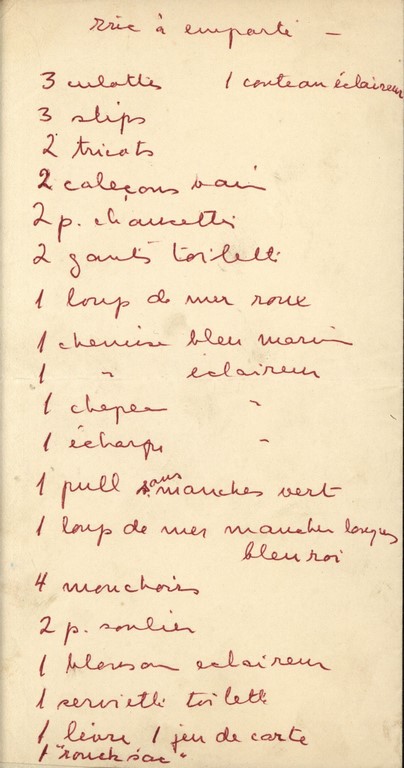 Eric à emporté -
3 culottes 1 couteau éclaireur
3 slips
2 tricots
2 caleçons bain
2 p. chaussettes
2 gants toilette
1 loup de mer roux
1 chemise bleu marin
1 " éclaireur
1 chapeau "
1 écharpe "
1 pull sans manches vert
1 loup de mer manches longues
bleu roi
4 mouchoirs
2 p. soulier
1 blouson eclaireur
1 serviette toilette
1 livre 1 jeu de carte
1 "roucksac"